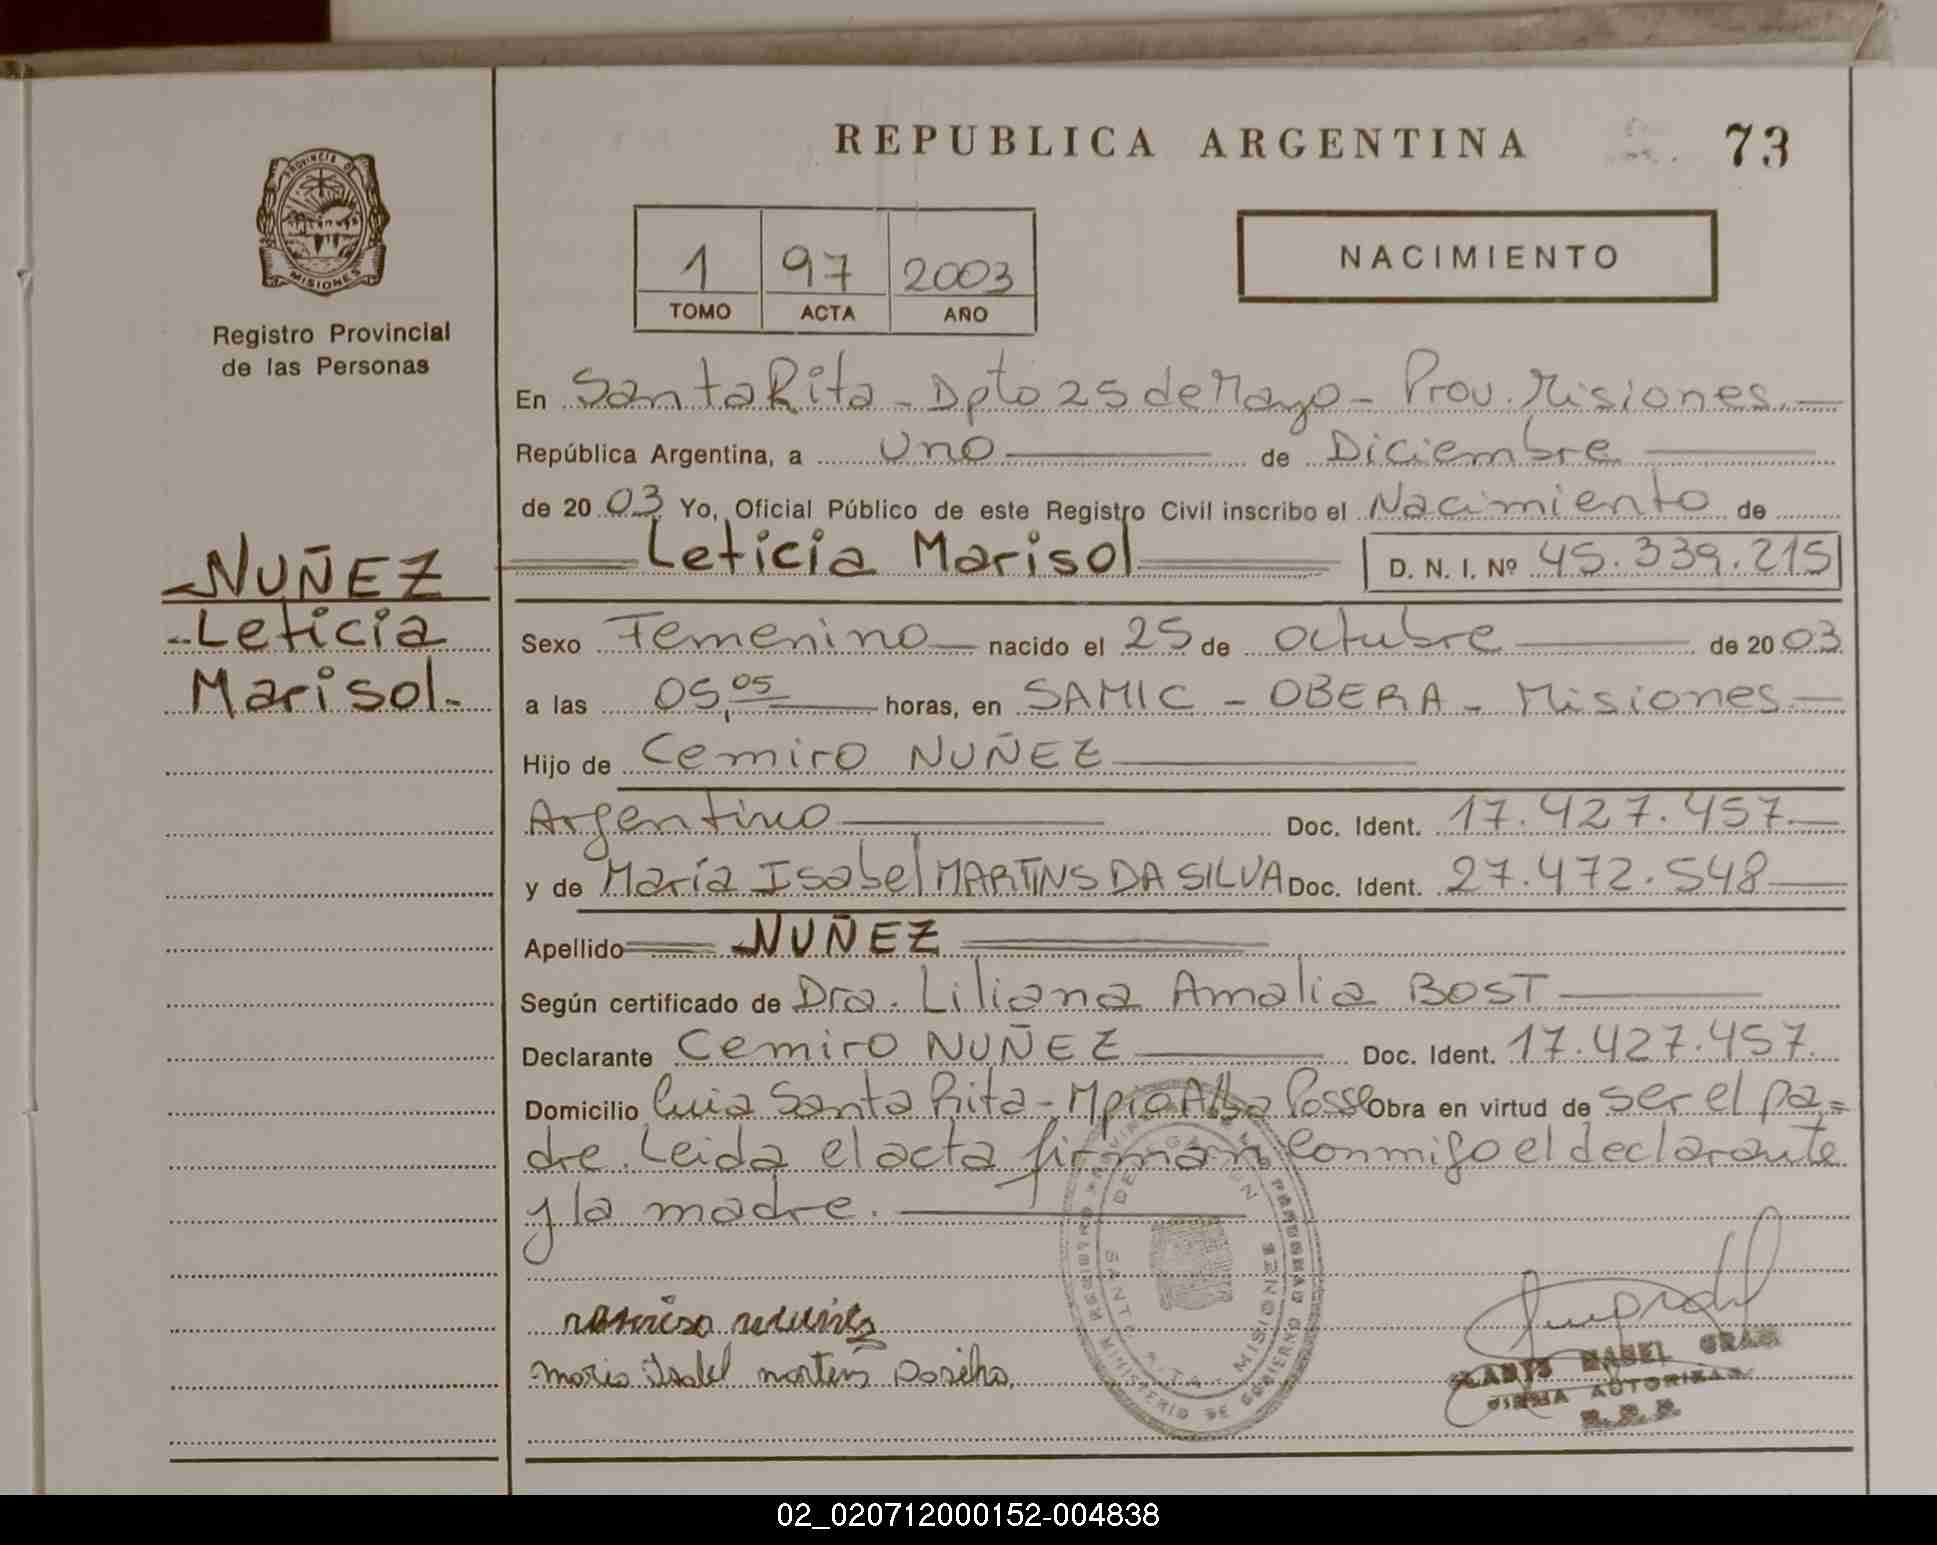 REPUBLICA ARGENTINA
73
PROVINCIA DE
MISIONES
Registro Provincial
de las Personas
1 97 2003
TOMO ACTA AÑO
NACIMIENTO
NUÑEZ
Leticia
Marisol.-
En Santa Rita - Dpto 25 de Mayo - Prov. Misiones.-
República Argentina, a uno de Diciembre
de 20 03 Yo, Oficial Público de este Registro Civil inscribo el Nacimiento de
Leticia Marisol D. N. I. Nº 45.339.215
Sexo Femenino nacido el 25 de octubre de 20 03
a las 05,05 horas, en SAMIC - OBERA - Misiones -
Hijo de Cemiro NUÑEZ
Argentino Doc. Ident. 17.427.457.-
y de María Isabel MARTINS DA SILVA Doc. Ident. 27.472.548
Apellido NUÑEZ
Según certificado de Dra. Liliana Amalia BOST
Declarante Cemiro NUÑEZ Doc. Ident. 17.427.457.
Domicilio Santa Rita - Mpio Alba Posse Obra en virtud de ser el pa=
dre. Leida el acta firman conmigo el declarante
y la madre.
DELEGACION
SANTA RITA - MISIONES
maria Isabel
MABEL
FIRMA AUTORIZADA
R. P. P.
02_020712000152-004838